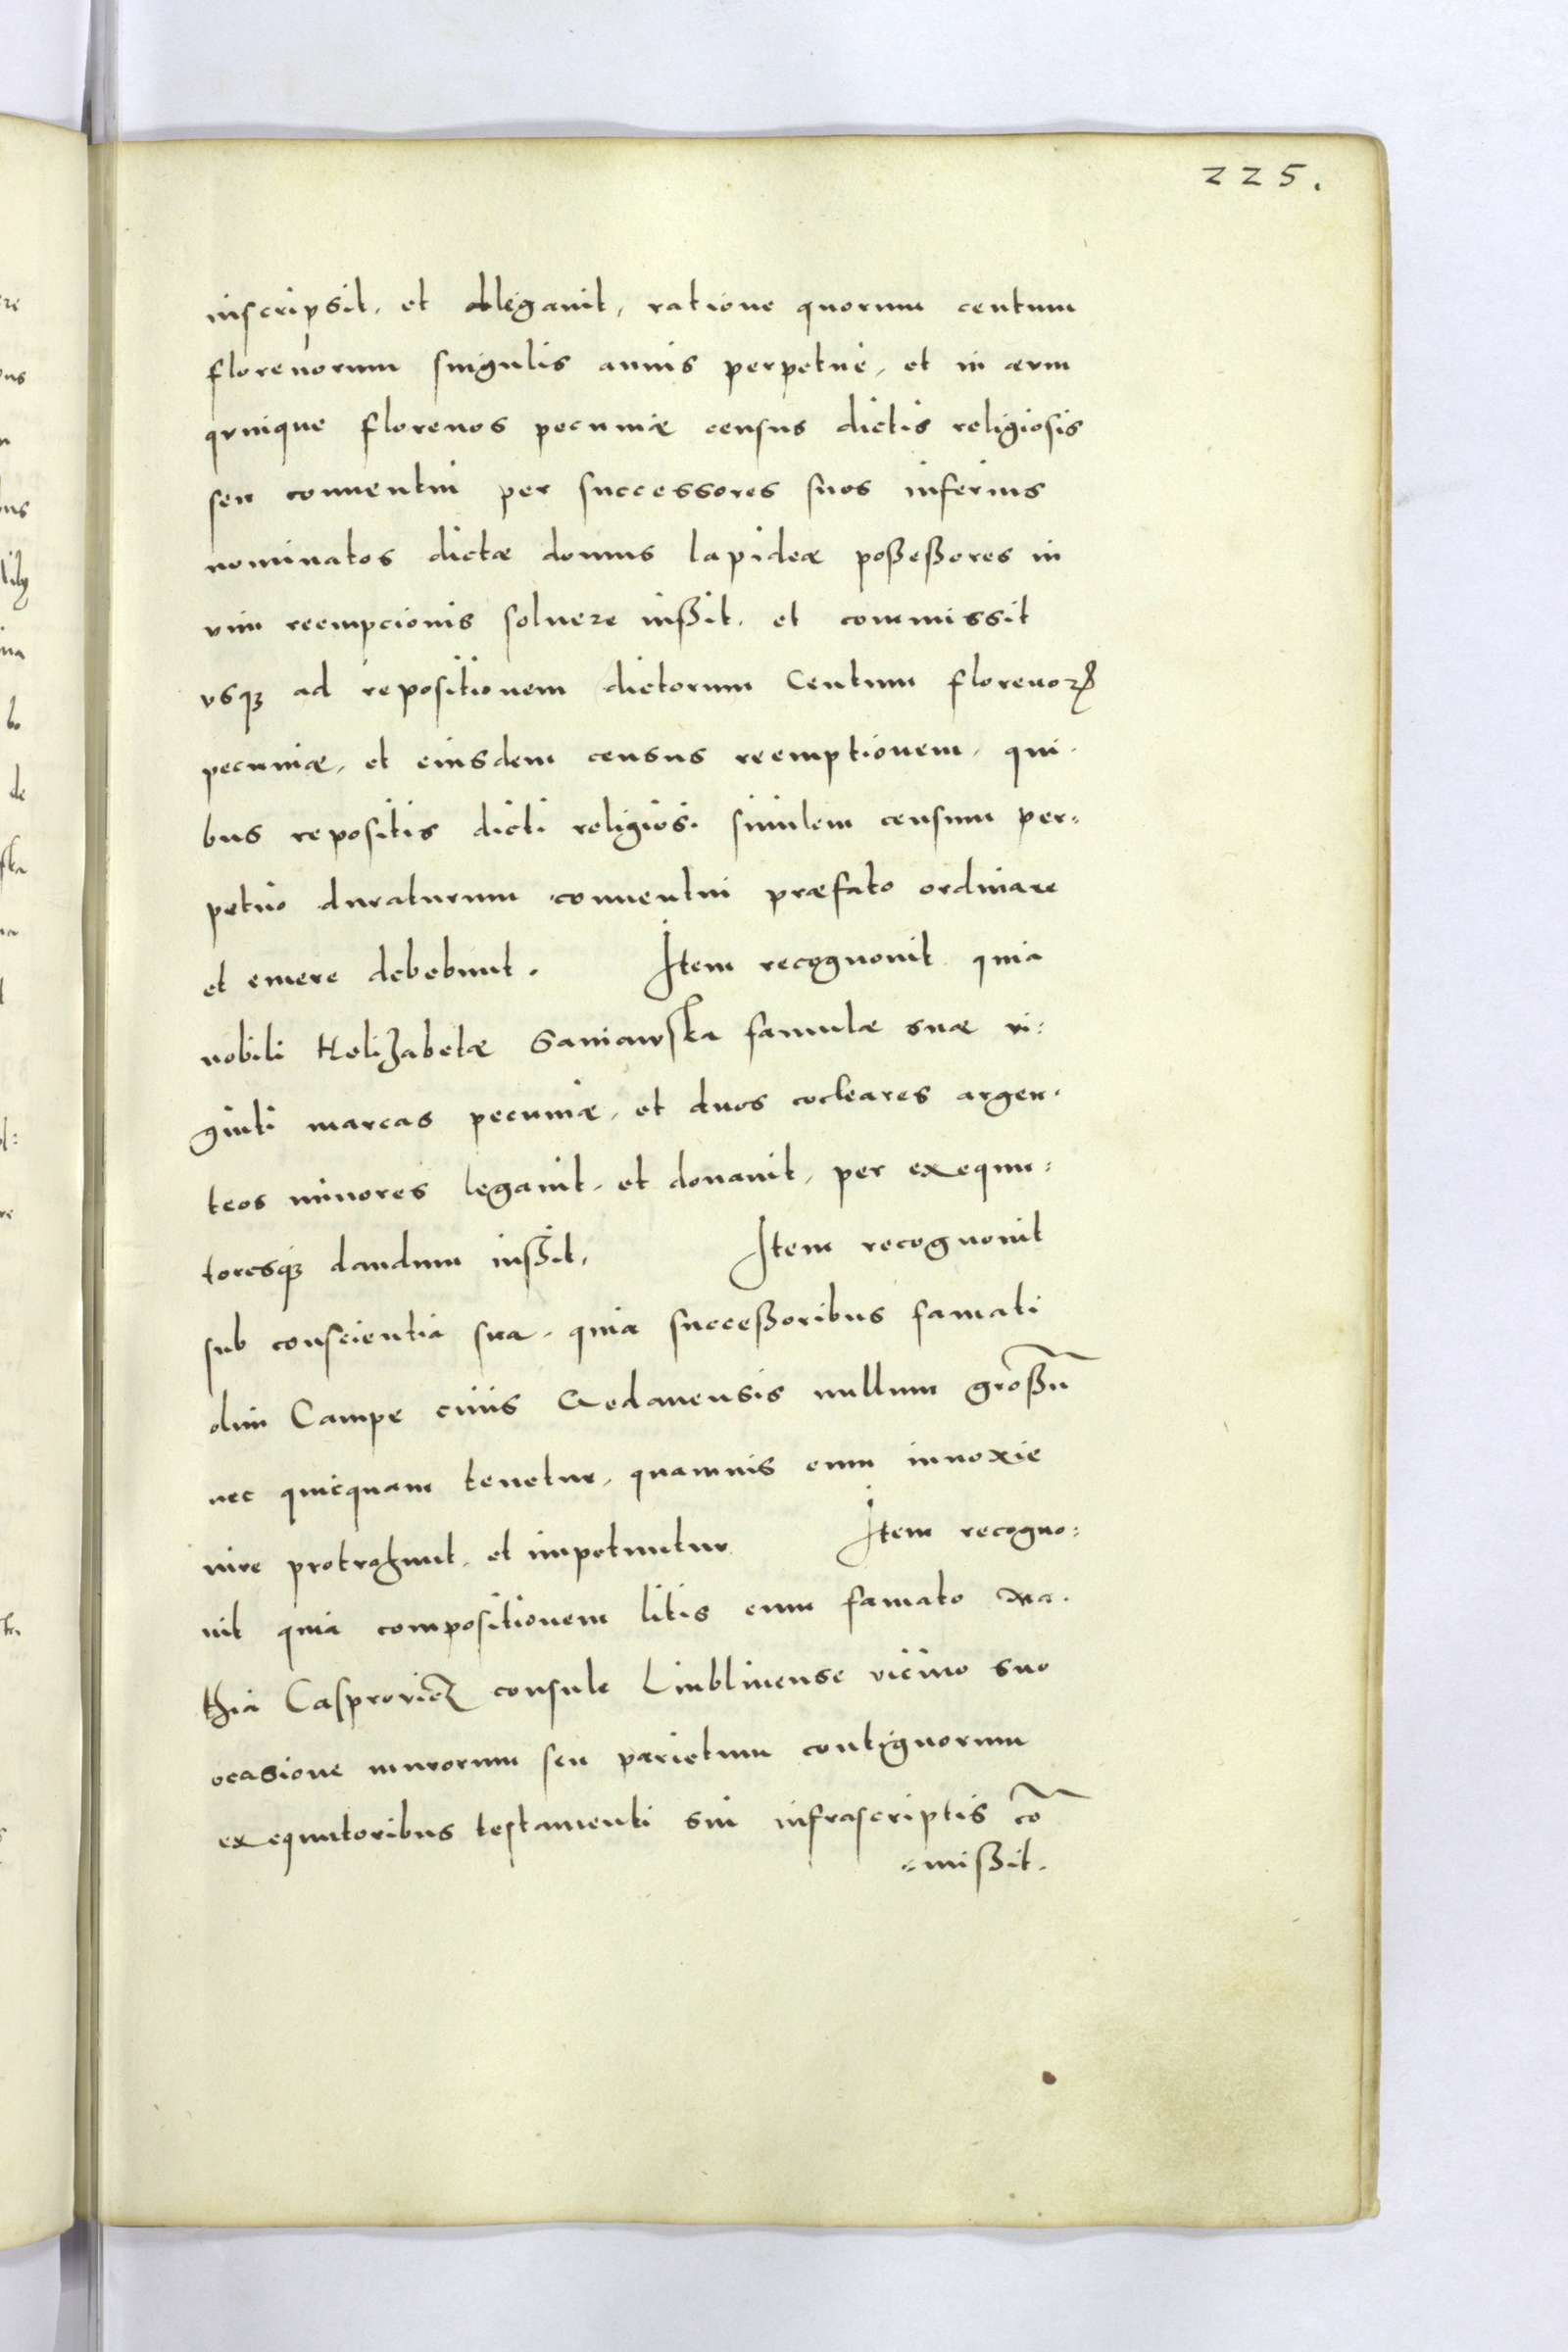 225.
inscripsit, et allegavit, ratione quorum centum
florenorum singulis annis perpetue, et in aevum
quinque florenos pecuniæ census dictis religiosis
seu conventui per successores suos inferius
nominatos dictæ domus lapideæ poßeßores in
vim reempcionis soluere iußit, et commissit
usq3 ad repositionem dictorum Centum florenorꝝ
pecuniæ, et eiusdem census reemptionem, qui-
bus repositis dicti religiosi similem censum per-
petuo duraturum conventui præfato ordinare
et emere debebunt. Item recognovit quia
nobili Helizabetæ Saniawska famulæ suæ vi:
ginti marcas pecuniæ, et duos cocleares argen-
teos minores legavit, et donavit, per exequu:
toresq3 dandum iußit, Item recognovit
sub conscientia sua, quia succeßoribus famati
olim Campe civis Gedanensis nullum großū
nec quicquam tenetur, quamvis eum innoxie
iure protrahunt, et impetuntur Item recogno:
vit quia compositionem litis cum famato Ma-
thia Casprovicz consule Liublinense vicino suo
ocasione murorum seu parietum contiguorum
exequutoribus testamenti sui infrascriptis cō
=mißit.